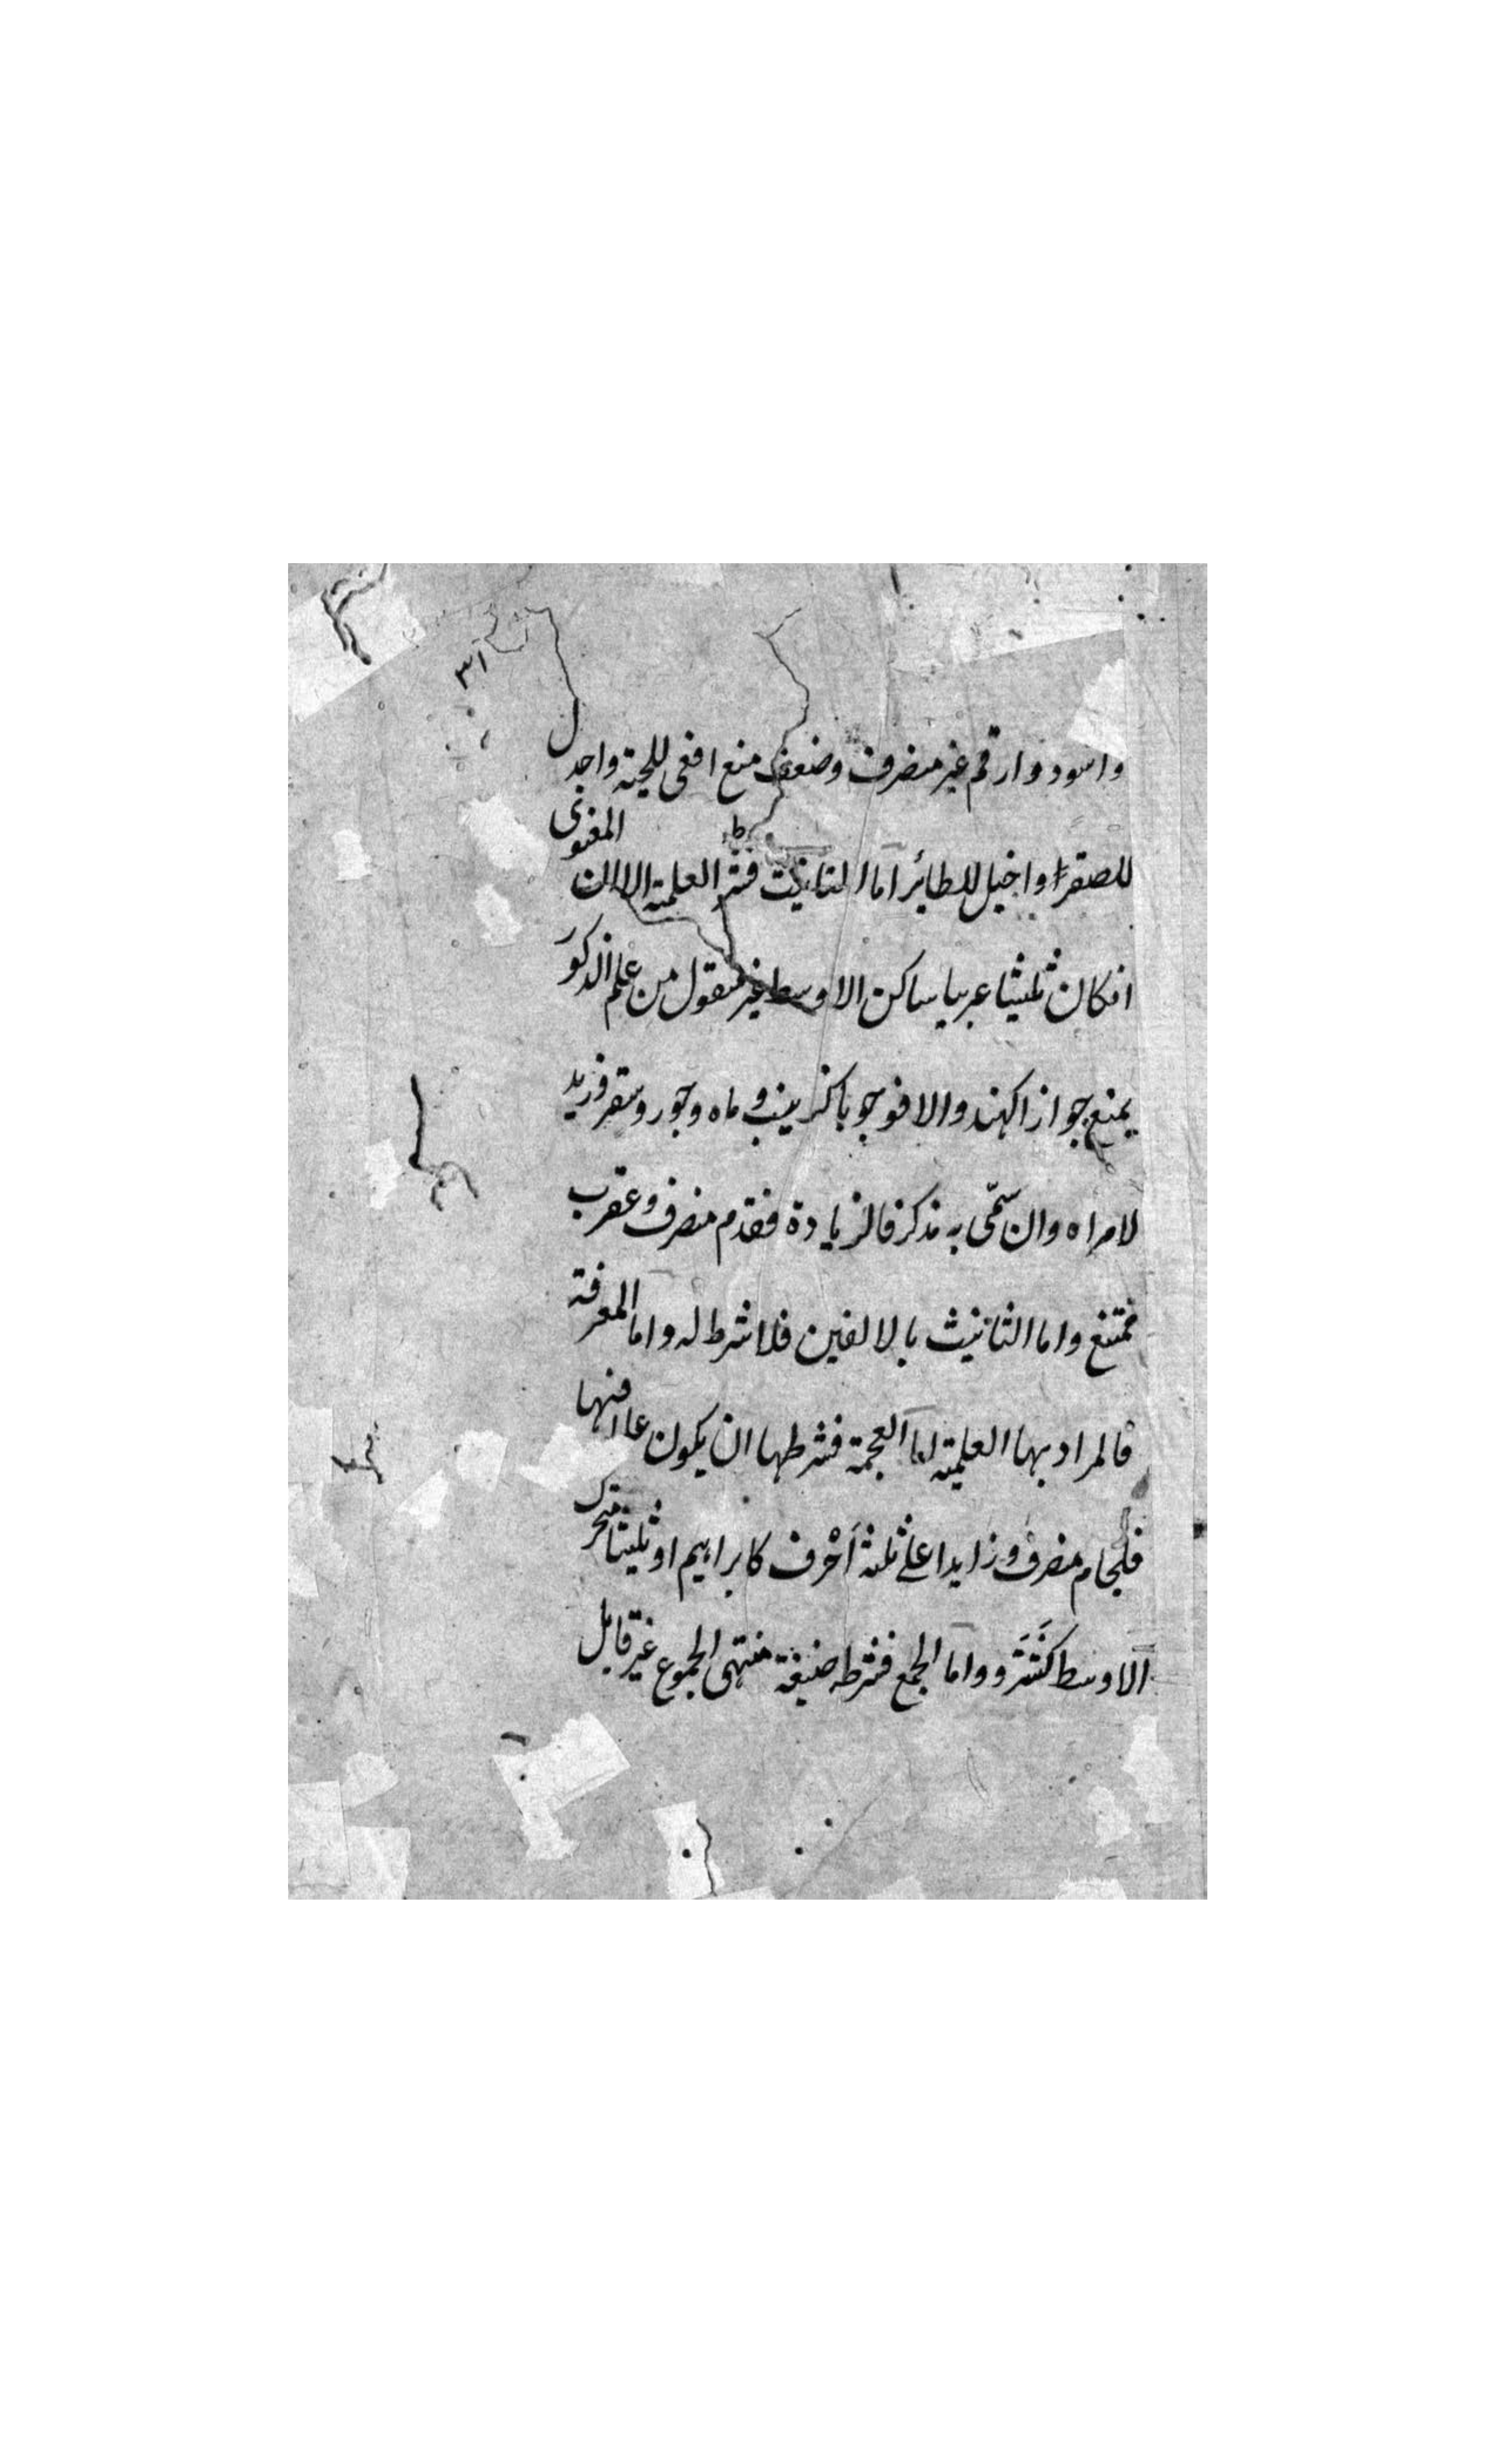 واسود وارقم غير منصرف وضعف منع افعى للحية واجدل
للصقر واخيل للطائر اما التانيث فشرط العلمية الا ان المعنوى
انكان ثلثيا عربيا ساكن الاوسط غير منقول من علم الذكور
يمنع جوازا كهند والا فوجوبا كزينب و ماه وجور وسقر وزيد
لامراه وان سمّى به مذكر فالزيادة فقدم منصرف وعقرب
ممتنع واما التانيث بالالفين فلا شرط له واما المعرفة
فالمراد بها العلمية اما العجمة فشرطها ان يكون علما فيها
فلجام منصرف وزايدا على ثلثة أحْرف كابراهيم او ثلثيا متحرك
الاوسط كشَتَر و واما الجمع فشرطه صيغة منتهى الجموع غير قابل